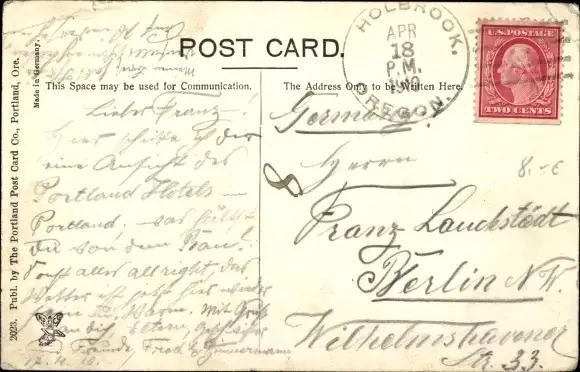 POST CARD.
This Space may be used for Communication.
The Address Only to be Written Here.
2023. Publ. by The Portland Post Card Co., Portland, Ore.
Made in Germany.
HOLBROOK,
APR
18
P.M.
OREGON.
U.S. POSTAGE
TWO CENTS
Lieber Franz!
Hier schicke ich dir
eine Ansicht des
Portland Hotels
Portland, was hältst
Du von dem Bau?
Sonst alles all right, das
Wetter ist jetzt hier wieder
warm. Mit Gruß
an dich, Eltern,
und Freunde, Fred Zimmermann
17.4.10.
Germany.
8
8.-€
Herrn
Franz Lauchstädt
Berlin N.W.
Wilhelmshavener
Str. 33.